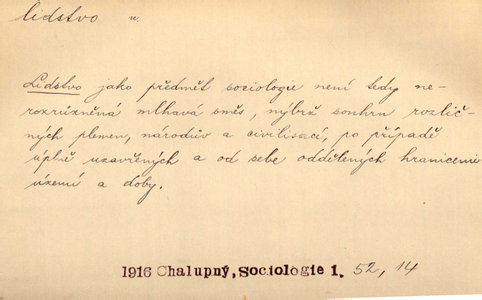 lidstvo n.
Lidstvo jako předmět sociologie není tedy ne-
rozrůzněná mlhavá směs, nýbrž souhrn rozlič-
ných plemen, národův a civilisací, po případě
úplně uzavřených a od sebe oddělených hranicemi
území a doby.
1916 Chalupný, Sociologie 1. 52, 14